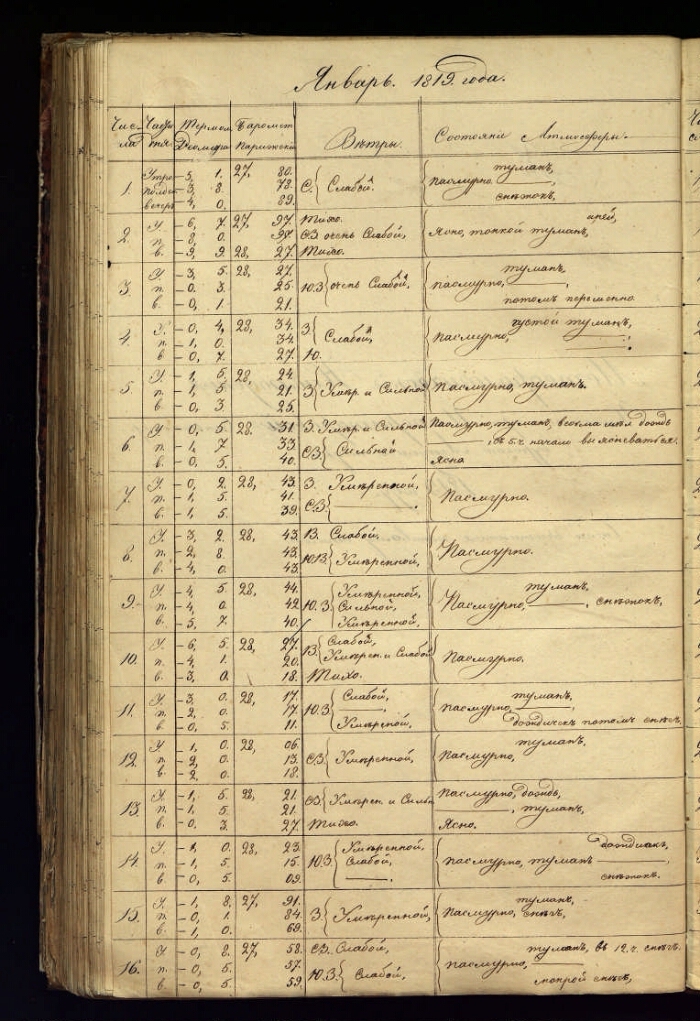 Январь. 1819 года.
Чис- Часы Термом Баромет Вѣтры. Состоянiи Атмосферы.
ла тя. Реомюра Парижскiй
туманъ,
Утро -3, 1. 27, 80.
1. полдень -3, 8. 78. С. Слабой. пасмурно
вечеръ -4, 0. 89. снѣжокъ,
У. -6, 7. 27, 97. Тихо. иней,
2. п. -8, 0. 98. СЗ очень Слабой, Ясно, тонкой туманъ,
в. -9, 9. 28, 27. Тихо.
У. -3, 5. 28, 27. туманъ,
3. п. -0, 3. 25. ЮЗ очень Слабой, пасмурно,
в. -0, 1. 21. потомъ перемѣнно
У. -0, 4, 28, 34. З густой туманъ,
4. п. -1, 0. 34. Слабой, пасмурно,
в. -0, 7. 27. Ю.
У. -1, 5. 28, 24.
5. п. -1, 5. 21. З Умѣр. и Сильной Пасмурно, туманъ.
в. -0, 3. 25.
У. -0, 5. 28. 31 З. Умѣр. и Сильной Пасмурно, туманъ, весьма мѣл. дождь
6. п. -1, 7. 33 СЗ Сильной съ 5. ч. начало
в. -0, 5. 40. Ясно.
У. -0, 2. 28, 43. З. Умѣренной,
7. п. -1, 5. 41. СЗ. Пасмурно.
в. -1, 5. 39.
У. -3, 2. 28, 43. В. Слабой,
8. п. -2, 8. 43. ЮВ. Умѣренной, Пасмурно.
в. -4, 0. 43.
У. -4, 5. 28, 44. Умѣренной, туманъ,
9. п. -4, 0. 42. Ю.З Сильной, Пасмурно, снѣжокъ,
в. -5, 7. 40. Умѣренной,
У. -6, 5. 28, 27. Слабой,
10. п. -4, 1. 20. В. Умѣрен. и Слабой Пасмурно.
в. -3, 0. 18. Тихо.
У. -3, 0. 28, 17. Слабой, туманъ,
11. п. -2, 0. 17. Ю.З пасмурно,
в. -0, 5. 11. Умѣреной, дождичекъ потомъ снѣгъ.
У -1, 0. 28, 06. туманъ,
12. п. -2, 0. 13. СЗ Умѣренной, пасмурно,
в. -2, 0. 18.
У. -1, 5. 28, 21. Пасмурно, дождь,
13. п. -1, 5. 21. СЗ Умѣрен. и Силь туманъ,
в. -0, 3. 27. Тихо. Ясно.
У. -1, 0. 28, 23. Умѣренной,
14. п. -1, 5. 15. ЮЗ Слабой, пасмурно, туманъ
в. -0, 5. 09. снѣжокъ.
У. -1, 8. 27, 91. туманъ,
15. п. -0, 1. 84. З Умѣренной, Пасмурно, снѣгъ,
в. -1, 0. 69.
У -0, 8. 27, 58. СВ. Слабой, туманъ, въ 12. ч. снѣгъ.
16. п. -0, 5. 57. пасмурно,
в. -0, 5. 59. Ю.З. Слабой, мокрой снѣгъ,